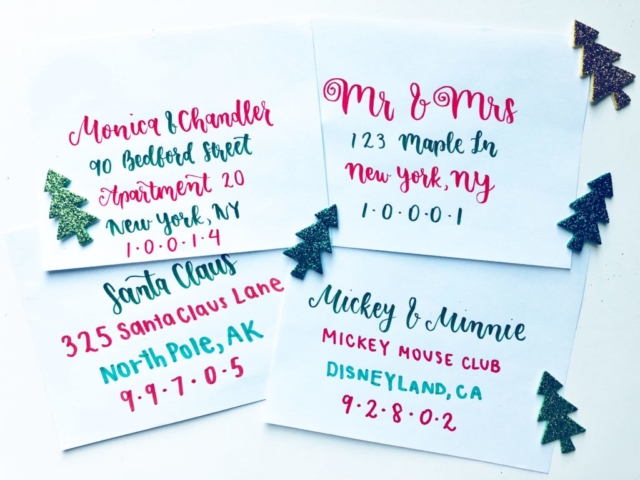 Monica & Chandler
90 Bedford Street
Apartment 20
New York, NY
1·0·0·1·4
Mr & Mrs
123 Maple Ln
New York, NY
1·0·0·0·1
Santa Claus
325 Santa Claus Lane
North Pole, AK
9·9·7·0·5
Mickey & Minnie
MICKEY MOUSE CLUB
DISNEYLAND, CA
9·2·8·0·2